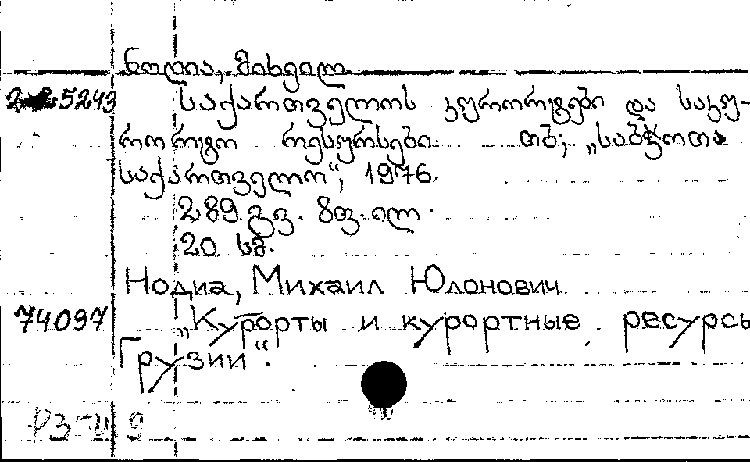 ნოდია, მიხეილ
საქართველოს კურორტები და საკუ-
რორტო რესურსები. თბ., „საბჭოთა
საქართველო“, 1976.
289 გვ. 8ფ. ილ.
20 სმ.
Нодиа, Михаил Юлонович
74097 „Курорты и курортные ресурсы
Грузии“.